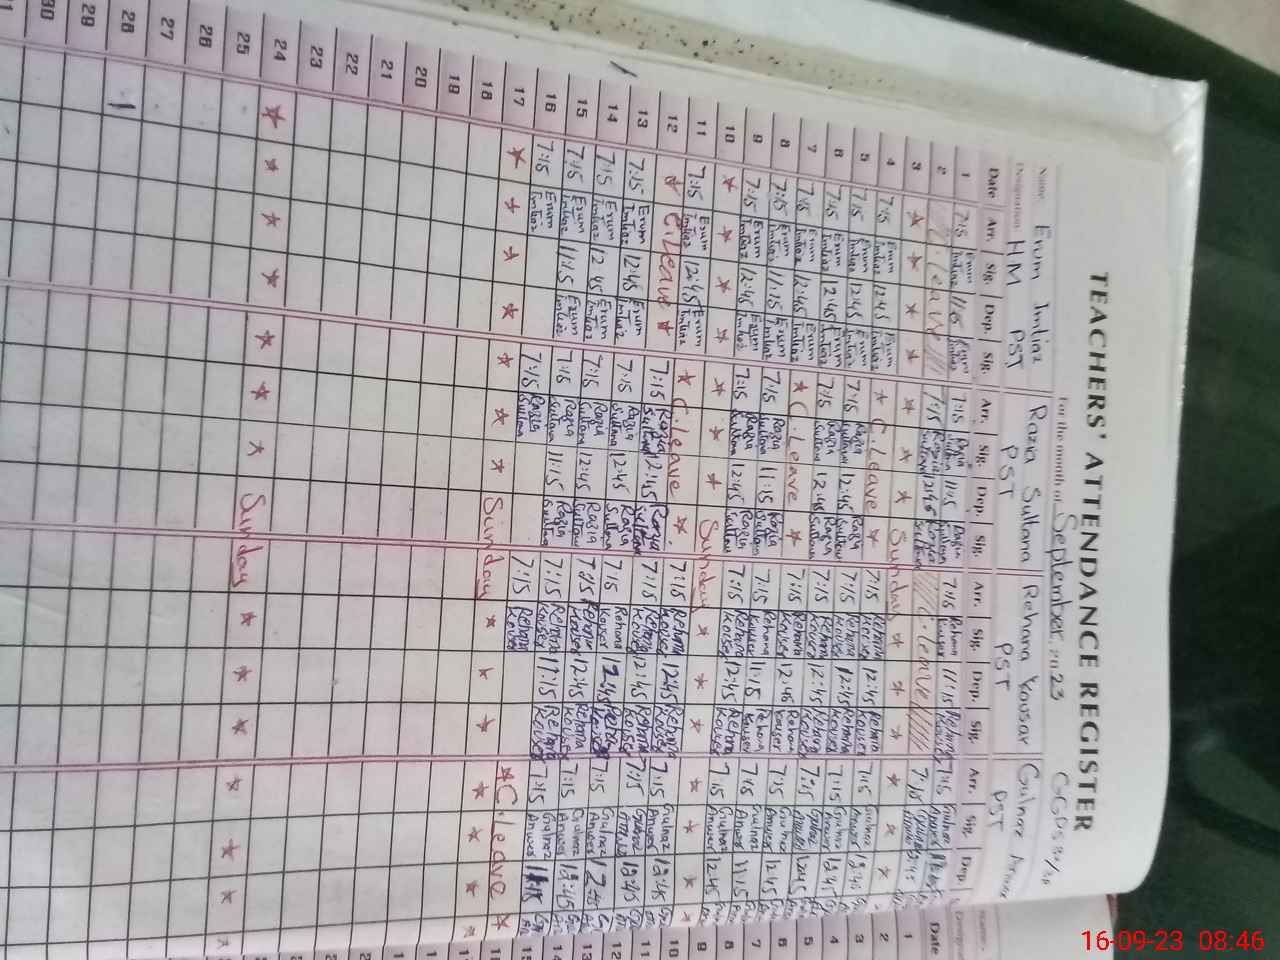 TEACHERS' ATTENDANCE REGISTER
For the month of September, 2023
Name Erum Imtiaz Razia Sultana Rehana Kousar Gulnaz Anwar
Designation HM PST PST PST PST
Date Arr. Sig. Dep. Sig. Arr. Sig. Dep. Sig. Arr. Sig. Dep. Sig. Arr. Sig. Dep.
1 7:15 Erum Imtiaz 11:15 Erum Imtiaz 7:15 Razia Sultana 11:15 Razia Sultana 7:15 Rehana Kouser 11:15 Rehana Kouser 7:15 Gulnaz Anwer
2 Leave 7:15 Razia Sultana 12:45 Razia Sultana C. Leave 7:15 Gulnaz
3 Sunday
4 7:15 Erum Imtiaz 12:45 Erum Imtiaz C. Leave 7:15 Rehana Kouser 12:45 Rehana Kouser 7:15 Gulnaz Anwer 12:45
5 7:15 Erum Imtiaz 12:45 Erum Imtiaz 7:15 Razia Sultana 12:45 Razia Sultana 7:15 Rehana Kouser 12:45 Rehana Kouser 7:15 Gulnaz Anwer 12:45
6 7:15 Erum Imtiaz 12:45 Erum Imtiaz 7:15 Razia Sultana 12:45 Razia Sultana 7:15 Rehana Kouser 12:45 Rehana Kouser 7:15 Gulnaz Anwer 12:45
7 7:15 Erum Imtiaz 12:45 Erum Imtiaz C. Leave 7:15 Rehana Kouser 12:45 Rehana Kouser 7:15 Gulnaz Anwer 12:45
8 7:15 Erum Imtiaz 11:15 Erum Imtiaz 7:15 Razia Sultana 11:15 Razia Sultana 7:15 Rehana Kouser 11:15 Rehana Kouser 7:15 Gulnaz Anwer 11:15
9 7:15 Erum Imtiaz 12:45 Erum Imtiaz 7:15 Razia Sultana 12:45 Razia Sultana 7:15 Rehana Kouser 12:45 Rehana Kouser 7:15 Gulnaz Anwer 12:45
10 Sunday
11 7:15 Erum Imtiaz 12:45 Erum Imtiaz C. Leave 7:15 Rehana Kouser 12:45 Rehana Kouser 7:15 Gulnaz Anwer 12:45
12 C. Leave 7:15 Razia Sultana 12:45 Razia Sultana 7:15 Rehana Kouser 12:45 Rehana Kouser 7:15 Gulnaz 12:45
13 7:15 Erum Imtiaz 12:45 Erum Imtiaz 7:15 Razia Sultana 12:45 Razia Sultana 7:15 Rehana Kouser 12:45 7:15 Gulnaz Anwer 12:45
14 7:15 Erum Imtiaz 12:45 Erum Imtiaz 7:15 Razia Sultana 12:45 Razia Sultana 7:15 Rehana Kouser 12:45 Rehana Kouser 7:15 Gulnaz Anwer 12:45
15 7:15 Erum Imtiaz 11:15 Erum Imtiaz 7:15 Razia Sultana 11:15 Razia Sultana 7:15 Rehana Kouser 11:15 Rehana Kouser 7:15 Gulnaz Anwer 11:15
16 7:15 Erum Imtiaz 7:15 Razia Sultana 7:15 Rehana Kouser C. leave
17 Sunday
18
19
20
21
22
23
24 Sunday
25
26
27
28
29
30
31
Date
1
2
3
4
5
6
7
8
9
10
11
12
13
14
15
16-09-23 08:46